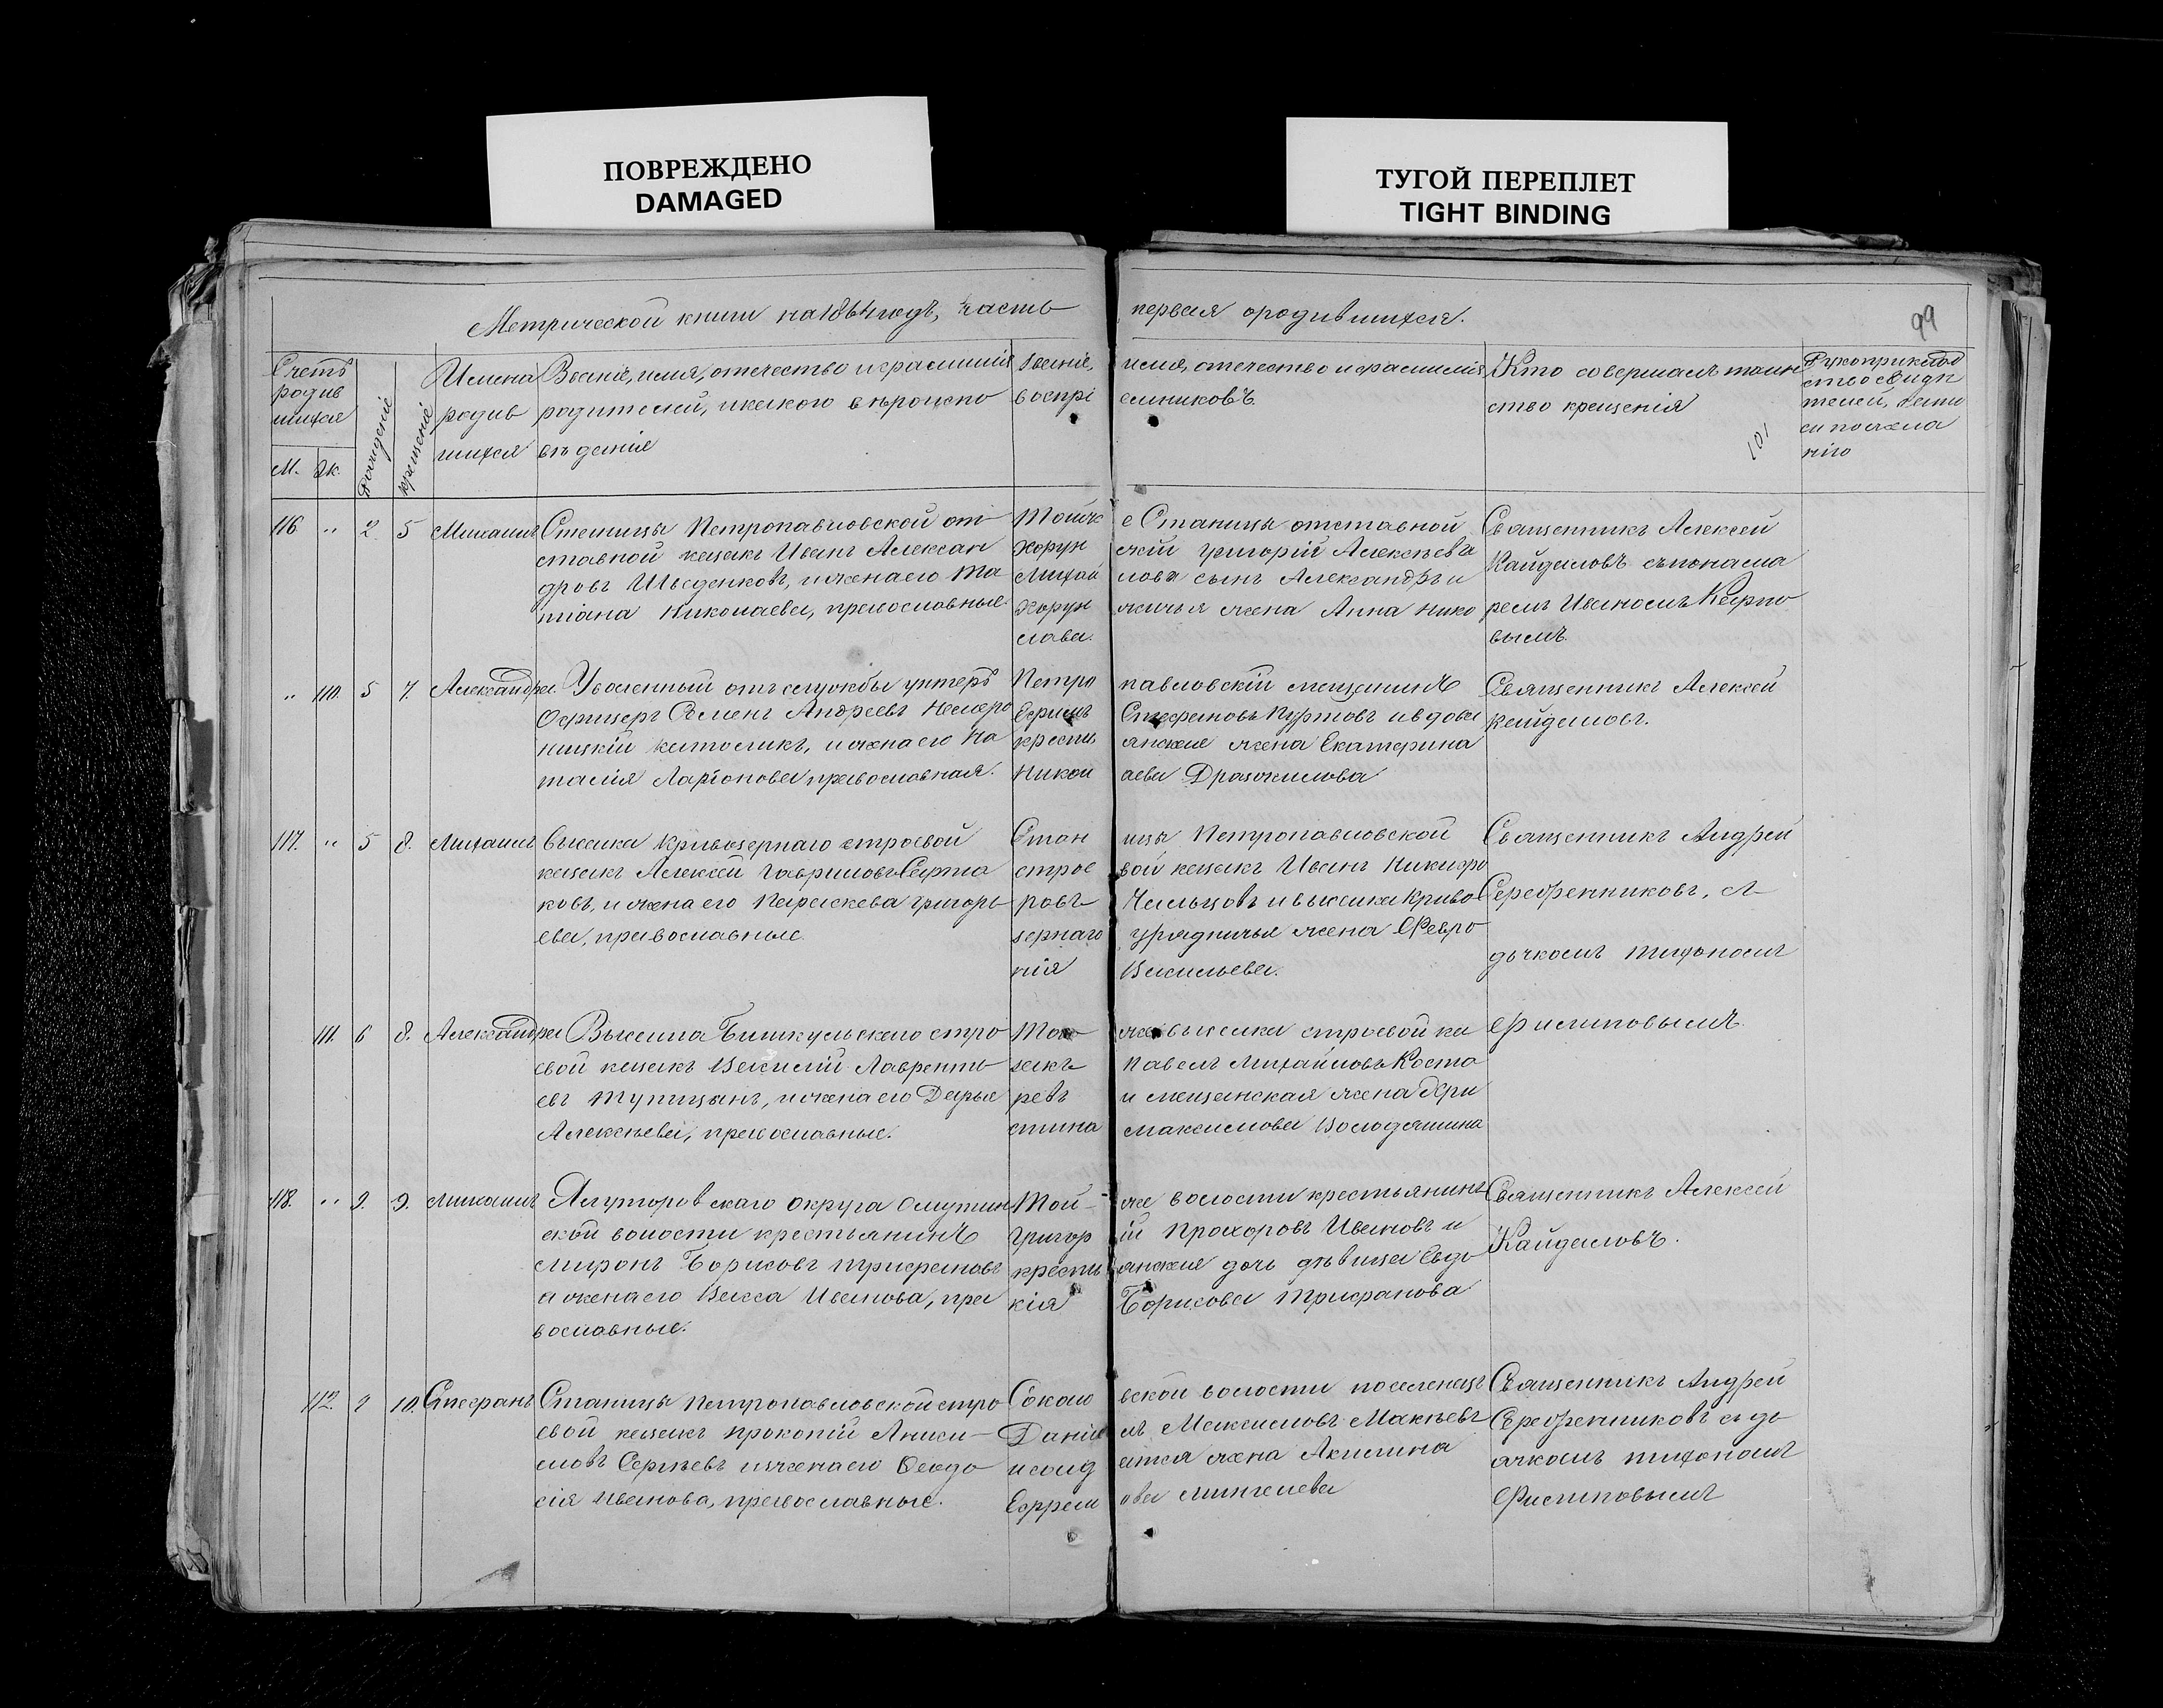 ПОВРЕЖДЕНО
DAMAGED
ТУГОЙ ПЕРЕПЛЕТ
TIGHT BINDING
Метрической книги на 1864 годъ, часть первая о родившихся.
99
Счетъ родившихся
М. Ж.
рожденіе
крещеніе
Имена родившихся
Званіе, имя, отечество и фамилія
родителей, и какого вѣроиспо
вѣданія
Званіе, имя, отечество и фамилія
воспріемниковъ.
Кто совершалъ таин
ство крещенія
101
Рукоприклад
ство свидѣ
телей, записи
по жела
нію
116 " 2 5 Михаилъ
Станицы Петропавловской от
ставной казакъ Иванъ Алексан
дровъ Шведенковъ, и жена его Та
тіана Николаева, православные.
Тойже Станицы отставной
Хорунжій Григорій Алексѣева
Михайлова сынъ Александръ и
Хорунжичья жена Анна Нико
лава.
Священникъ Алексей
Кайдаловъ съ понама
ремъ Иваномъ Карпо
вымъ.
" 110. 5 7. Александра.
Уволенный отъ службы унтеръ
Офицеръ Семенъ Андреевъ
католикъ, и жена его На
талія Ларіонова православная.
Петропавловскій мещанинъ
Ефримъ Стефановъ Куртовъ и вдова
крестьянская жена Екатерина
Николаева
Священникъ Алексей
Кайдаловъ.
117. " 5 8. Михаилъ
выселка Кривозернаго строевой
казакъ Алексей Гавриловъ Сарта
ковъ, и жена его Параскева Григорь
ева, православные.
Станицы Петропавловской
строевой казакъ Иванъ Никифо
ровъ Чильцовъ и выселка Криво
зернаго урядничья жена Февро
нія Васильева.
Священникъ Андрей
Серебренниковъ, съ
дьячкомъ Тихономъ
Филиповымъ.
111. 6 8. Александра
Выселка Бишкульскаго стро
евой казакъ Василій Лавренть
евъ Тупицынъ, и жена его Дарья
Алексѣева, православные.
Того же выселка строевой ка
закъ Павелъ Михайловъ Коста
ревъ и мещанская жена Хри
стина Максимова Володяшина
118. " 9. 9. Михаилъ
Ялуторовскаго округа Омутин
ской волости крестьянинъ
Миронъ Борисовъ Трифановъ
и жена его Васса Иванова, пра
вославные.
Той же волости крестьянинъ
Григорій Прохоровъ Ивановъ и
крестьянская дочь дѣвица Евдо
кія Борисова Трифанова
Священникъ Алексей
Кайдаловъ.
112. 9 10. Стефанъ
Станицы Петропавловской стро
евой казакъ Прокопій Аниси-
мовъ Сергѣевъ и жена его Феодо
сія Иванова, православные.
Соколовской волости поселенецъ
Даніилъ Максимовъ Макѣевъ
и солдатка жена Акилина
Ефремова
Священникъ Андрей
Серебренниковъ съ дь
ячкомъ Тихономъ
Филиповымъ